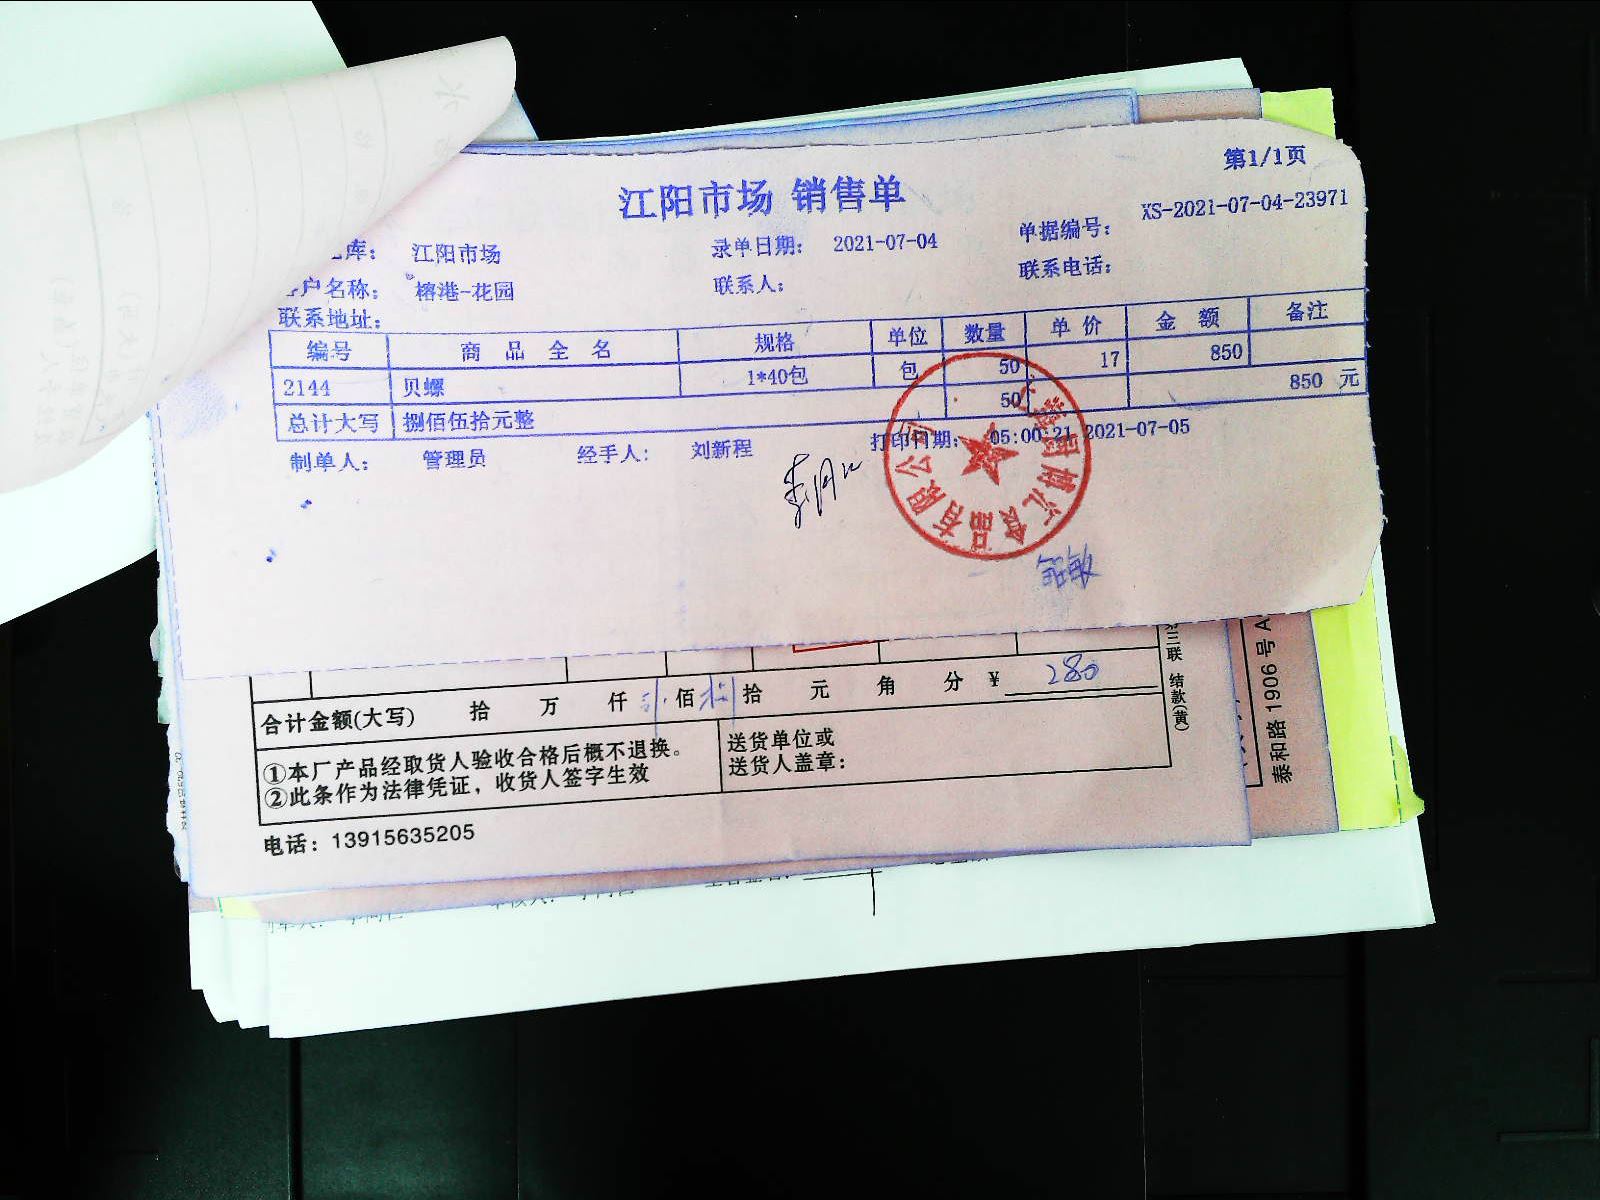 第1/1页
江阳市场 销售单
库： 江阳市场 录单日期： 2021-07-04 单据编号： XS-2021-07-04-23971
户名称： 榕港-花园 联系人： 联系电话：
联系地址：
编号 商 品 全 名 规格 单位 数量 单 价 金 额 备注
2144 贝螺 1*40包 包 50 17 850
总计大写 捌佰伍拾元整 50 850 元
制单人： 管理员 经手人： 刘新程 打印日期： 05:00:21 2021-07-05
博汇食品有限公司
合计金额(大写) 拾 万 仟 佰 拾 元 角 分 ¥ 280
①本厂产品经取货人验收合格后概不退换。
②此条作为法律凭证，收货人签字生效
送货单位或
送货人盖章：
电话：13915635205
三联 结款(黄)
泰和路 1906 号 A